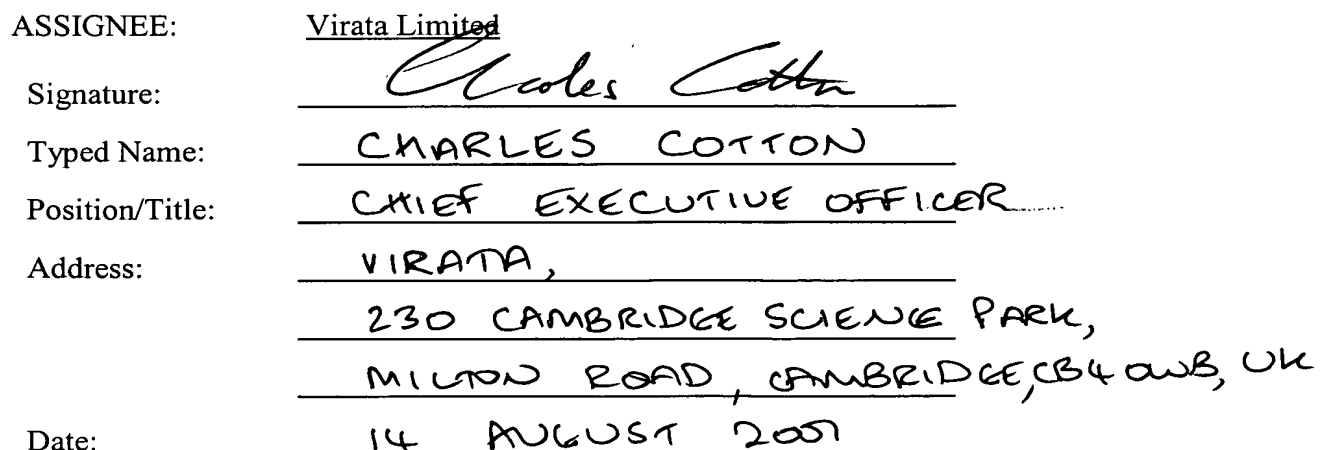 ASSIGNEE: Virata Limited
Signature: Charles Cotton
Typed Name: CHARLES COTTON
Position/Title: CHIEF EXECUTIVE OFFICER
Address: VIRATA,
230 CAMBRIDGE SCIENCE PARK,
MILTON ROAD, CAMBRIDGE, CB4 0WB, UK
Date: 14 AUGUST 2001